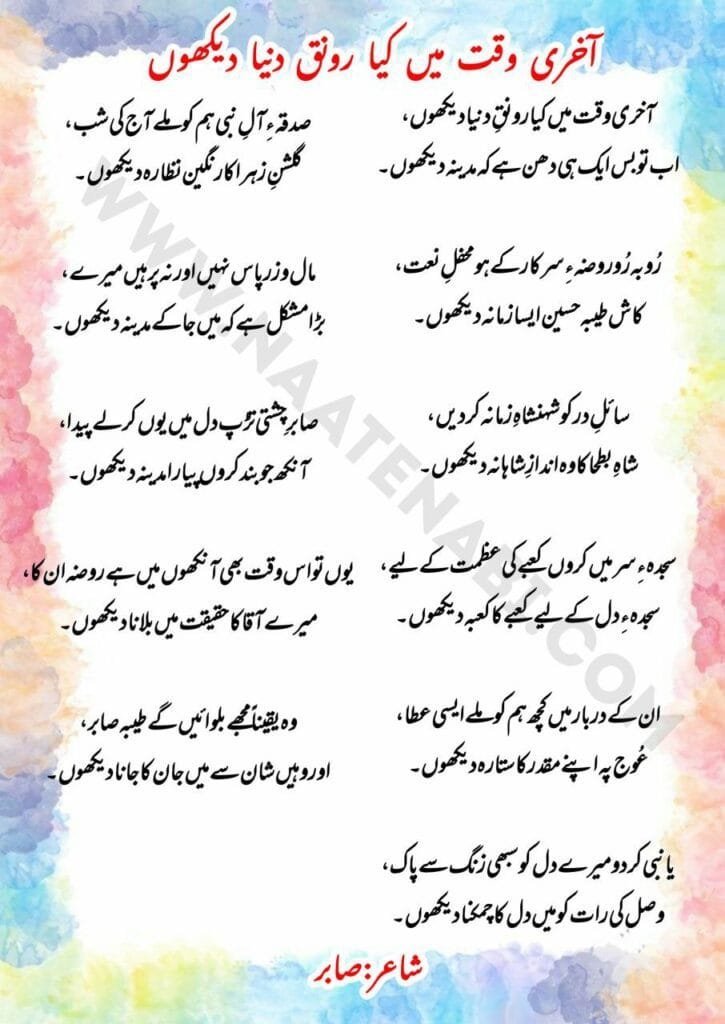 آخری وقت میں کیا رونق دنیا دیکھوں
آخری وقت میں کیا رونقِ دنیا دیکھوں،
اب تو بس ایک ہی دھن ہے کہ مدینہ دیکھوں۔
رُو بہ رُو روضہءِ سرکار کے ہو محفلِ نعت،
کاش طیبہ حسین ایسا زمانہ دیکھوں۔
سائلِ در کو شہنشاہِ زمانہ کر دیں،
شاہِ بطحا کا وہ اندازِ شاہانہ دیکھوں۔
سجدہءِ سر میں کروں کعبے کی عظمت کے لیے،
سجدہءِ دل کے لیے کعبے کا کعبہ دیکھوں۔
ان کے دربار میں کچھ ہم کو ملے ایسی عطا،
عُوج پہ اپنے مقدر کا ستارہ دیکھوں۔
یا نبی کر دو میرے دل کو سبھی زنگ سے پاک،
وصل کی رات کو میں دل کا چمکنا دیکھوں۔
صدقہءِ آلِ نبی ہم کو ملے آج کی شب،
گلشنِ زہرا کا رنگین نظارہ دیکھوں۔
مال و زر پاس نہیں اور نہ پر ہیں میرے،
بڑا مشکل ہے کہ میں جا کے مدینہ دیکھوں۔
صابرِ چشتی تڑپ دل میں یوں کر لے پیدا،
آنکھ جو بند کروں پیارا مدینہ دیکھوں۔
یوں تو اس وقت بھی آنکھوں میں ہے روضہ ان کا،
میرے آقا کا حقیقت میں بلانا دیکھوں۔
وہ یقیناً مجھے بلوائیں گے طیبہ صابر،
اور وہیں شان سے میں جان کا جانا دیکھوں۔
شاعر:صابر
WWW.NAATENABI.COM